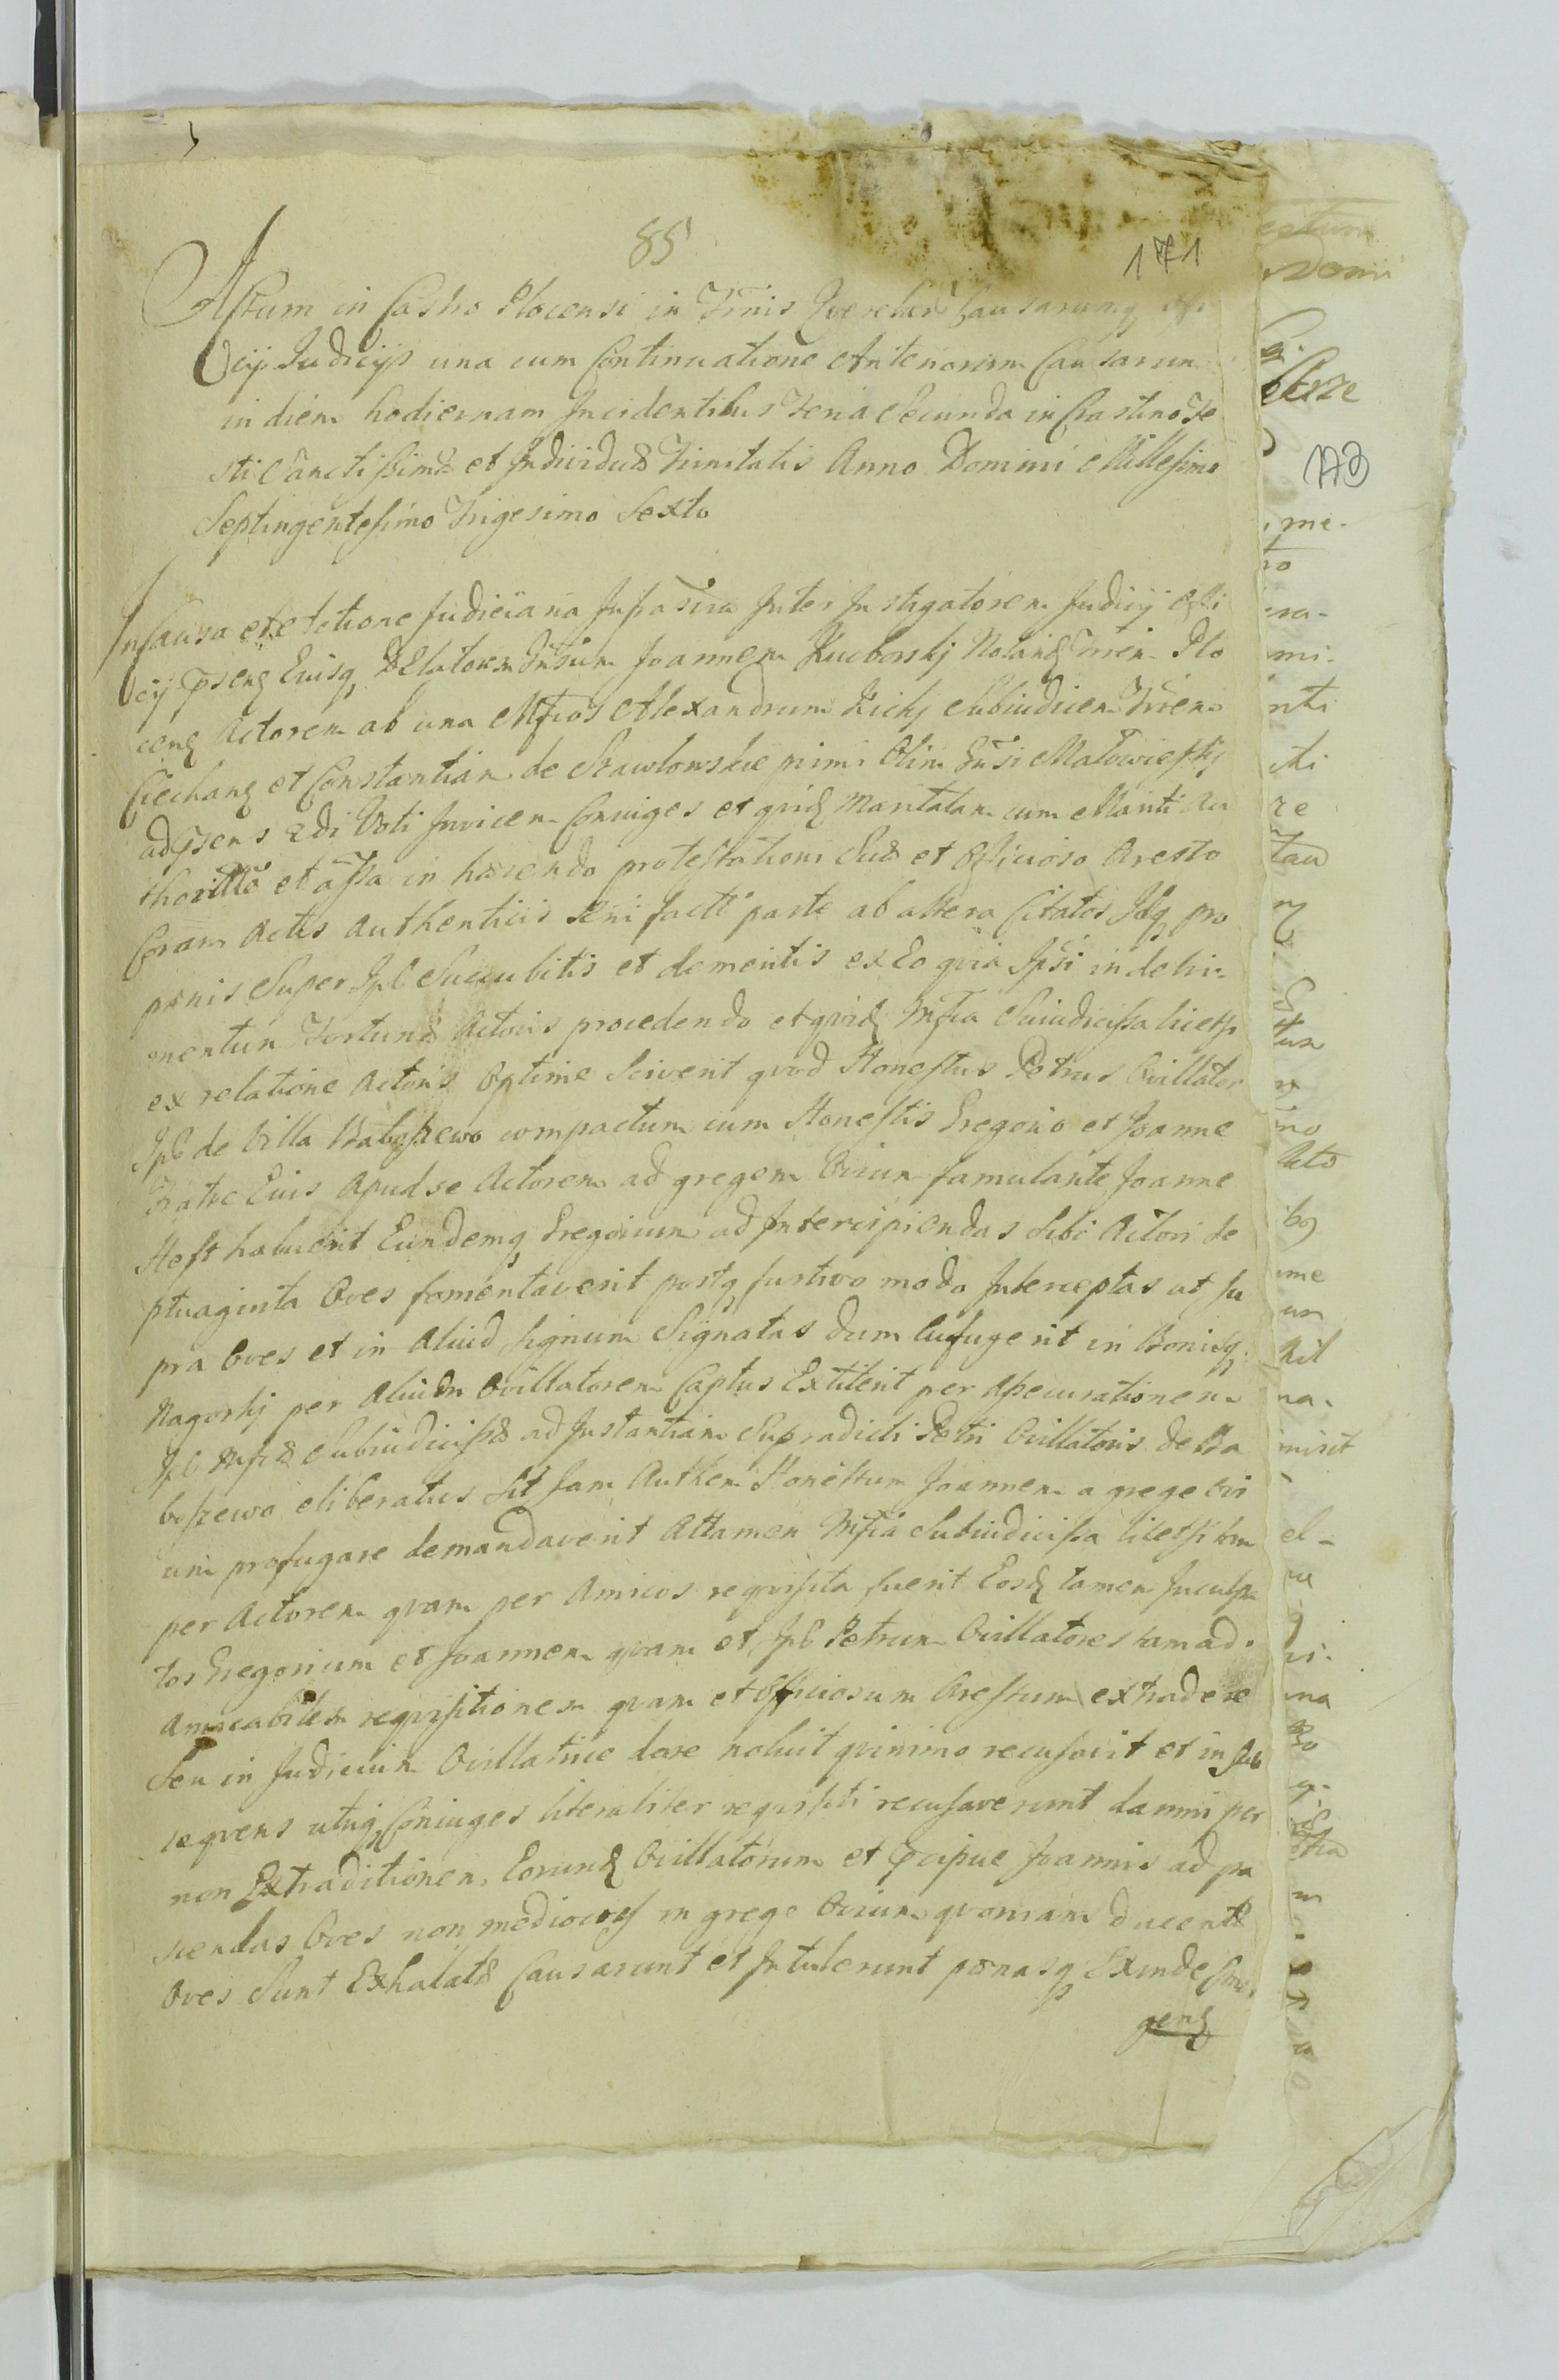 85
171
Actum in Castro Plocensi in Trnis Querelar Causarumq offi
cij Judicijs una cum Continuatione Anteriorum Causarum
in diem hodiernam Incidentibus Feria Secunda in Crastino Fe
sti Sanctissimæ et Individuæ Trinitatis Anno Domini Millesimo
Septingentesimo Trigesimo Sexto
In Causa et Actione Judiciaria Infrascra Inter Instigatorem Judicij offi
cij psenq Eiusq Delatorem Gnsum Joannem Kucborskj Notariq Trien Plo
cenq Actorem ab una Mfcos Alexandrum Kickj Subiudicem Trren
Ciechanq et Constantiam de Szawłowskie primi olim Gnsi Małowieskj
ad psens 2di Voti Invicem Coniuges et quidq Maritalam cum Mariti Au
thoritte et assa in hærendo protestationi Suæ et Officioso Aresto
Coram Actis Authenticis Seri facti parte ab altera Citatos Idq pro
pœnis Super Ips Succubitis et dementis ex Eo quia Ipsi in detri
mentum Fortunæ Actoris procedendo et quidq Mfca Suiudicissa licet
ex relatione Actoris Optime Sciverit quod Honestus Petrus Ovillator
Ips de Villa Baboszewo compactum cum Honestis Gregorio et Joanne
Fratre Eius Apud se Actorem ad gregem Ovium famulante Joanne
Hest habuerit Eundemq Gregorium ad Intercipiendas Sibi Actori se
ptuaginta Oves fomentaverit postq furtivo modo Interceptas ut su
pra Oves et in aliud Signum Signatas dum aufugerit in Bonisq
Nagorkj per alium Ovillatorem Captus Extiterit per Assecurationem
Ips Mfcæ Subiudicissæ ad Instantiam Supradicti Petri Ovillatoris de Ba
boszewo eliberatus sit Jam Authem Honestum Joannem a grege ovi
um profugare demandaverit Attamen Mfca Subiudicissa licet tam
per Actorem quam per Amicos requisita fuerit Eosq tamen Inculpa
tos Gregorium et Joannem quam et Ips Petrum Ovillatores tam ad
Amicabilem requisitionem quam et Officiosum Arestum extradere
Seu in Judicium Ovillatrice dare noluit quinimo recusavit et in sub
sequens utiq Coniuges literaliter requisiti recusaverunt damni per
non Extraditionem Eorundq Ovillatorum et pcipue Joannis ad pa
scendas Oves non mediocres in grege Ovium quoniam ducentæ
Oves Sunt Exhalatæ Causarunt et Intulerunt pœnasq Exinde Eme
genq
173